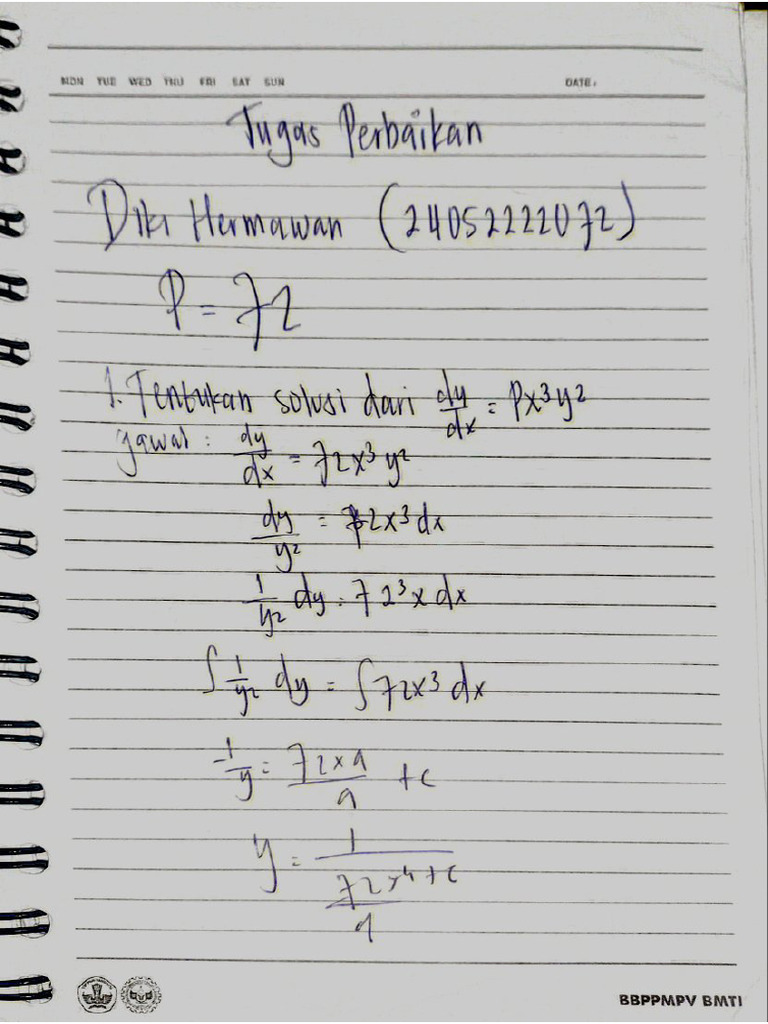 MON TUE WED THU FRI SAT SUN DATE:
Tugas Perbaikan
Diki Hermawan (24052222072)
P = 72
1. Tentukan solusi dari dy/dx = Px³y²
Jawab : dy/dx = 72x³y²
dy/y² = 72x³ dx
1/y² dy = 72³x dx
∫ 1/y² dy = ∫ 72x³ dx
-1/y = 72x4/4 + c
y = 1/(72x⁴/4 + c)
BBPPMPV BMTI